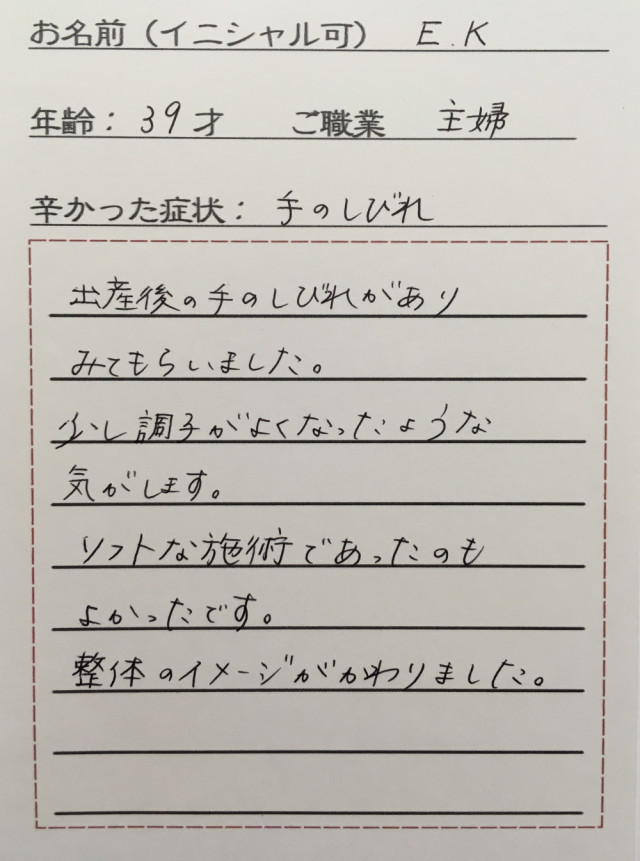 お名前（イニシャル可） E.K
年齢：39才 ご職業 主婦
辛かった症状：手のしびれ
出産後の手のしびれがあり
みてもらいました。
少し調子がよくなったような
気がします。
ソフトな施術であったのも
よかったです。
整体のイメージがかわりました。